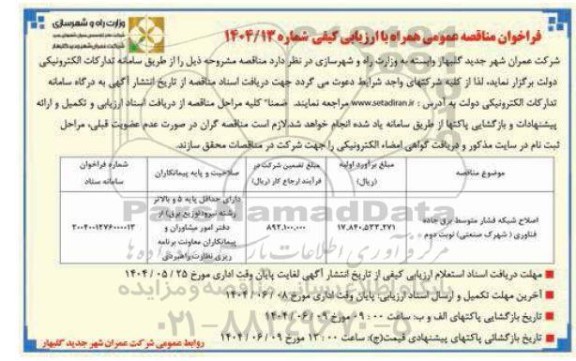 وزارت راه و شهرسازی
شرکت عمران شهر جدید گلبهار
فراخوان مناقصه عمومی همراه با ارزیابی کیفی شماره ۱۴۰۴/۱۳
شرکت عمران شهر جدید گلبهار وابسته به وزارت راه و شهرسازی در نظر دارد مناقصه مشروحه ذیل را از طریق سامانه تدارکات الکترونیکی
دولت برگزار نماید، لذا از کلیه شرکتهای واجد شرایط دعوت می گردد جهت دریافت اسناد مناقصه از تاریخ انتشار آگهی به درگاه سامانه
تدارکات الکترونیکی دولت به آدرس : www.setadiran.ir مراجعه نمایند. ضمنا" کلیه مراحل مناقصه از دریافت اسناد ارزیابی و تکمیل و ارائه
پیشنهادات و بازگشایی پاکتها از طریق سامانه یاد شده انجام خواهد شد.لازم است مناقصه گران در صورت عدم عضویت قبلی، مراحل
ثبت نام در سایت مذکور و دریافت گواهی امضاء الکترونیکی را جهت شرکت در مناقصات محقق سازند.
موضوع مناقصه
مبلغ برآورد اولیه (ریال)
مبلغ تضمین شرکت در فرآیند ارجاع کار (ریال)
صلاحیت و پایه پیمانکاران
شماره فراخوان سامانه ستاد
اصلاح شبکه فشار متوسط برق جاده
فناوری ( شهرک صنعتی) نوبت دوم
۱۷,۸۴۰,۵۳۳,۲۷۱
۸۹۲,۱۰۰,۰۰۰
دارای حداقل پایه ۵ و بالاتر
رشته نیرو(توزیع برق) از
دفتر امور مشاوران و
پیمانکاران معاونت برنامه
ریزی نظارت راهبردی
۲۰۰۴۰۰۱۲۷۶۰۰۰۰۱۳
ParsNamadData
مهلت دریافت اسناد استعلام ارزیابی کیفی از تاریخ انتشار آگهی لغایت پایان وقت اداری مورخ ۲۵ / ۰۵ / ۱۴۰۴
آخرین مهلت تکمیل و ارسال اسناد ارزیابی: پایان وقت اداری مورخ ۰۸ / ۰۶ / ۱۴۰۴
تاریخ بازگشایی پاکتهای الف و ب: ساعت ۰۹:۰۰ مورخ ۰۹ / ۰۶ / ۱۴۰۴
تاریخ بازگشائی پاکتهای پیشنهادی قیمت(ج): ساعت ۱۳:۰۰ مورخ ۰۹ / ۰۶ / ۱۴۰۴
روابط عمومی شرکت عمران شهر جدید گلبهار
۰۲۱-۸۸۳۴۹۶۷۰-۵